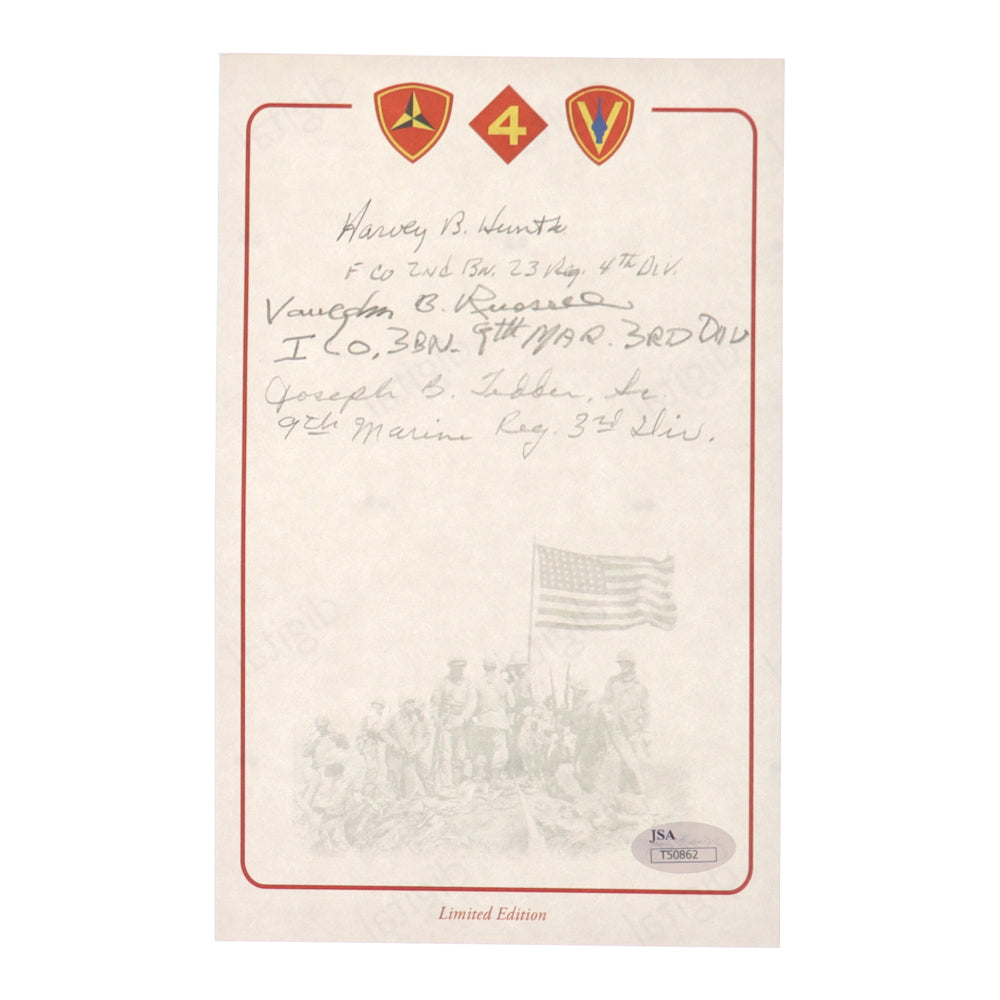 4
Harvey B. Hunt
F Co 2nd Bn. 23 Reg. 4th Div.
Vaughn B. Russell
I CO, 3BN- 9th MAR. 3RD DIV
Joseph B. Tedder, Sr.
9th Marine Reg. 3rd Div.
JSA
TS0862
Limited Edition